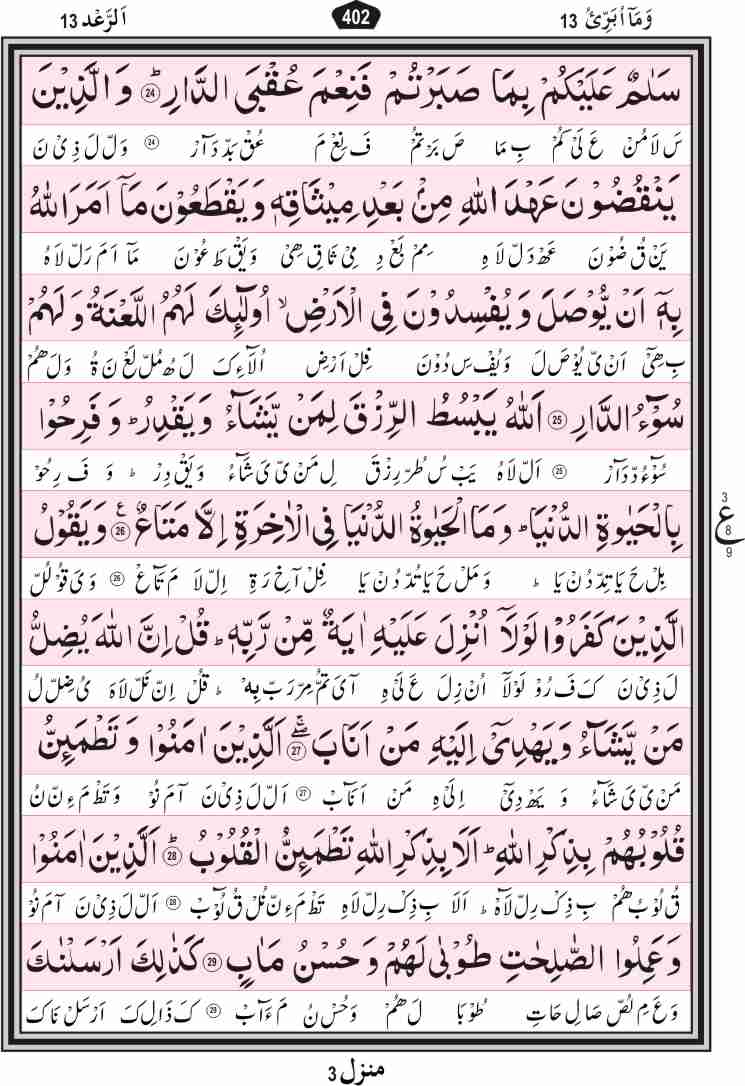 وَمَآ اُبَرِّئُ 13
402
اَلرَّعْد 13
سَلٰمٌ عَلَيْكُمْ بِمَا صَبَرْتُمْ فَنِعْمَ عُقْبَى الدَّارِ ؕ 24 وَ الَّذِيْنَ
سَ لَامُنْ عَ لَىْ كُمْ بِ مَا صَ بَرْ تُمْ فَ نِعْ مَ عُقْ بَدّ دَآرْ 24 وَلّ لَ ذِىْ نَ
يَنْقُضُوْنَ عَهْدَ اللهِ مِنْۢ بَعْدِ مِيْثَاقِهٖ وَ يَقْطَعُوْنَ مَاۤ اَمَرَ اللهُ
يَنْ قُ ضُوْنَ عَهْ دَلّ لَا هِ مِمْ بَعْ دِ مِىْ ثَاقِ هِىْ وَيَقْ طَ عُوْنَ مَآ اَمَ رَلّ لَاهُ
بِهٖۤ اَنْ يُّوْصَلَ وَ يُفْسِدُوْنَ فِى الْاَرْضِ ۙ اُولٰٓئِكَ لَهُمُ اللَّعْنَةُ وَ لَهُمْ
بِ هِىْٓ اَنْ ىّ يُوْصَ لَ وَيُفْ سِ دُوْنَ فِلْ اَرْضِ اُلَآءِكَ لَ هُ مُلّ لَعْ نَ ةُ وَلَ هُمْ
سُوْٓءُ الدَّارِ 25 اَللهُ يَبْسُطُ الرِّزْقَ لِمَنْ يَّشَآءُ وَ يَقْدِرُ ؕ وَ فَرِحُوْا
سُوْٓءُ دّ دَآرْ 25 اَلّ لَاهُ يَبْ سُ طُرّ رِزْقَ لِ مَنْ ىّ يَ شَآءُ وَيَقْ دِرْ ؕ وَ فَ رِحُوْ
بِالْحَيٰوةِ الدُّنْيَا ؕ وَ مَا الْحَيٰوةُ الدُّنْيَا فِى الْاٰخِرَةِ اِلَّا مَتَاعٌ ۧ 26 وَ يَقُوْلُ
بِلْ حَ يَاتِ دّ دُنْ يَا ؕ وَ مَلْ حَ يَاتُ دّ دُنْ يَا فِلْ آخِ رَةِ اِلّ لَا مَ تَاعْ 26 وَىَ قُوْلُلّ
الَّذِيْنَ كَفَرُوْا لَوْلَاۤ اُنْزِلَ عَلَيْهِ اٰيَةٌ مِّنْ رَّبِّهٖ ؕ قُلْ اِنَّ اللهَ يُضِلُّ
لَ ذِىْ نَ كَ فَ رُوْ لَوْلَآ اُنْ زِلَ عَ لَىْ هِ آىَ تُمّ مِرّ رَبّ بِهْ ؕ قُلْ اِنّ نَلّ لَاهَ يُ ضِلّ لُ
مَنْ يَّشَآءُ وَ يَهْدِىْۤ اِلَيْهِ مَنْ اَنَابَ ۖۚ 27 اَلَّذِيْنَ اٰمَنُوْا وَ تَطْمَئِنُّ
مَنْ ىّ يَ شَآءُ وَ يَهْ دِىْٓ اِلَىْ هِ مَنْ اَنَابْ 27 اَلّ لَ ذِىْ نَ آمَ نُوْ وَتَطْ مَ ءِنّ نُ
قُلُوْبُهُمْ بِذِكْرِ اللهِ ؕ اَلَا بِذِكْرِ اللهِ تَطْمَئِنُّ الْقُلُوْبُ ؕ 28 اَلَّذِيْنَ اٰمَنُوْا
قُ لُوْبُ هُمْ بِ ذِكْ رِلّ لَآهْ ؕ اَلَا بِ ذِكْ رِلّ لَاهِ تَطْ مَ ءِنّ نُلْ قُ لُوْٓبْ 28 اَلّ لَ ذِىْ نَ آمَ نُوْ
وَ عَمِلُوا الصّٰلِحٰتِ طُوْبٰى لَهُمْ وَ حُسْنُ مَاٰبٍ 29 كَذٰلِكَ اَرْسَلْنٰكَ
وَعَ مِ لُصّ صَالِ حَاتِ طُوْبَا لَ هُمْ وَحُسْ نُ مَ ءَآبْ 29 كَ ذَالِكَ اَرْسَلْ نَاكَ
3
ع
8
9
منزل 3